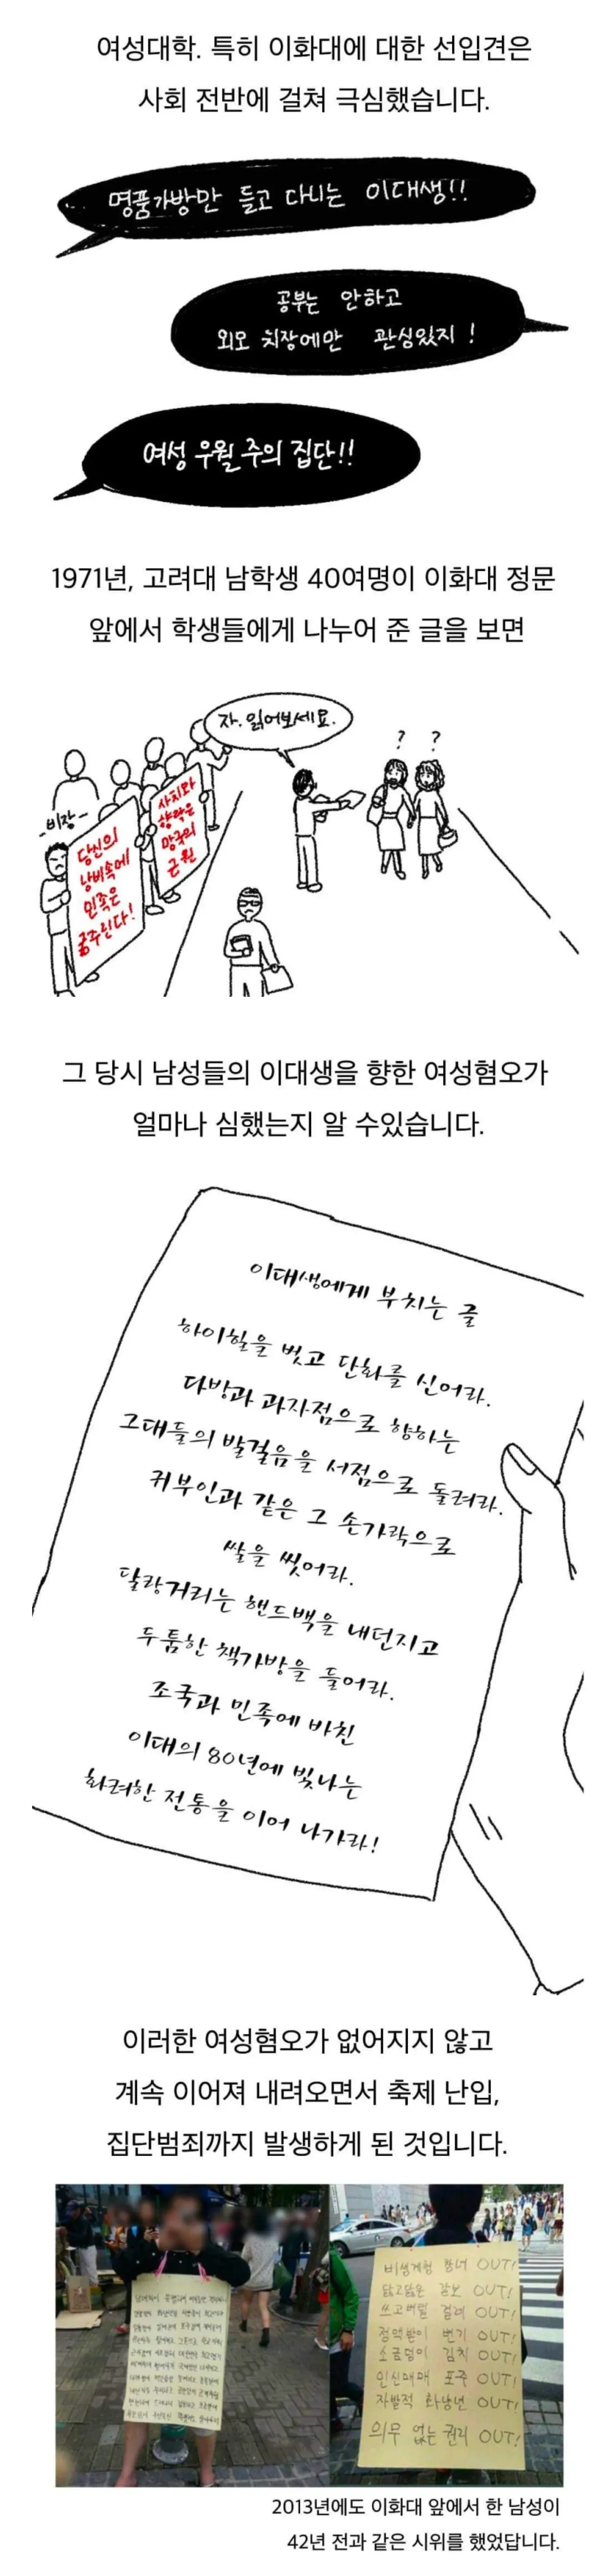 여성대학. 특히 이화대에 대한 선입견은
사회 전반에 걸쳐 극심했습니다.
명품가방만 들고 다니는 이대생!!
공부는 안하고
외모 치장에만 관심있지!
여성 우월주의 집단!!
1971년, 고려대 남학생 40여명이 이화대 정문
앞에서 학생들에게 나누어 준 글을 보면
자. 읽어보세요.
? ?
-비장-
당신의
낭비속에
민족은
굶주린다!
사치와
향락은
망국의
근원
그 당시 남성들의 이대생을 향한 여성혐오가
얼마나 심했는지 알 수있습니다.
이대생에게 부치는 글
하이힐을 벗고 단화를 신어라.
다방과 과자점으로 향하는
그대들의 발걸음을 서점으로 돌려라.
귀부인과 같은 그 손가락으로
쌀을 씻어라.
달랑거리는 핸드백을 내던지고
두툼한 책가방을 들어라.
조국과 민족에 바친
이대의 80년에 빛나는
화려한 전통을 이어 나가라!
이러한 여성혐오가 없어지지 않고
계속 이어져 내려오면서 축제 난입,
집단범죄까지 발생하게 된 것입니다.
비생계형 창녀 OUT!
닳고닳은 걸보 OUT!
쓰고버릴 걸레 OUT!
정액받이 변기 OUT!
소금덩이 김치 OUT!
인신매매 포주 OUT!
자발적 화냥년 OUT!
의무 없는 권리 OUT!
2013년에도 이화대 앞에서 한 남성이
42년 전과 같은 시위를 했었답니다.